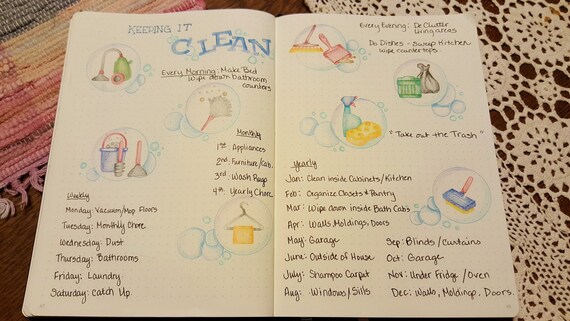 KEEPING IT
CLEAN
Every Morning: Make Bed
Wipe down bathroom
counters
Monthly
1st Appliances
2nd. Furniture/Cab.
3rd. Wash Rugs
4th. Yearly Chore
Weekly
Monday: Vacuum/Mop Floors
Tuesday: Monthly Chore
Wednesday: Dust
Thursday: Bathrooms
Friday: Laundry
Saturday: Catch Up.
Every Evening: De Clutter
living areas
Do Dishes - Sweep Kitchen
wipe countertops
"Take out the Trash"
Yearly
Jan: Clean inside Cabinets/Kitchen
Feb: Organize Closets & Pantry
Mar: Wipe down inside Bath Cab's
Apr: Walls, Moldings, Doors
May: Garage
June: Outside of House
July: Shampoo Carpet
Aug: Windows/Sills
Sep: Blinds/Curtains
Oct: Garage
Nov: Under Fridge/Oven
Dec: Walls, Moldings, Doors.